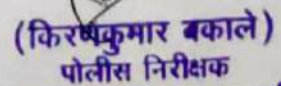 (किरणकुमार बकाले)
पोलीस निरीक्षक